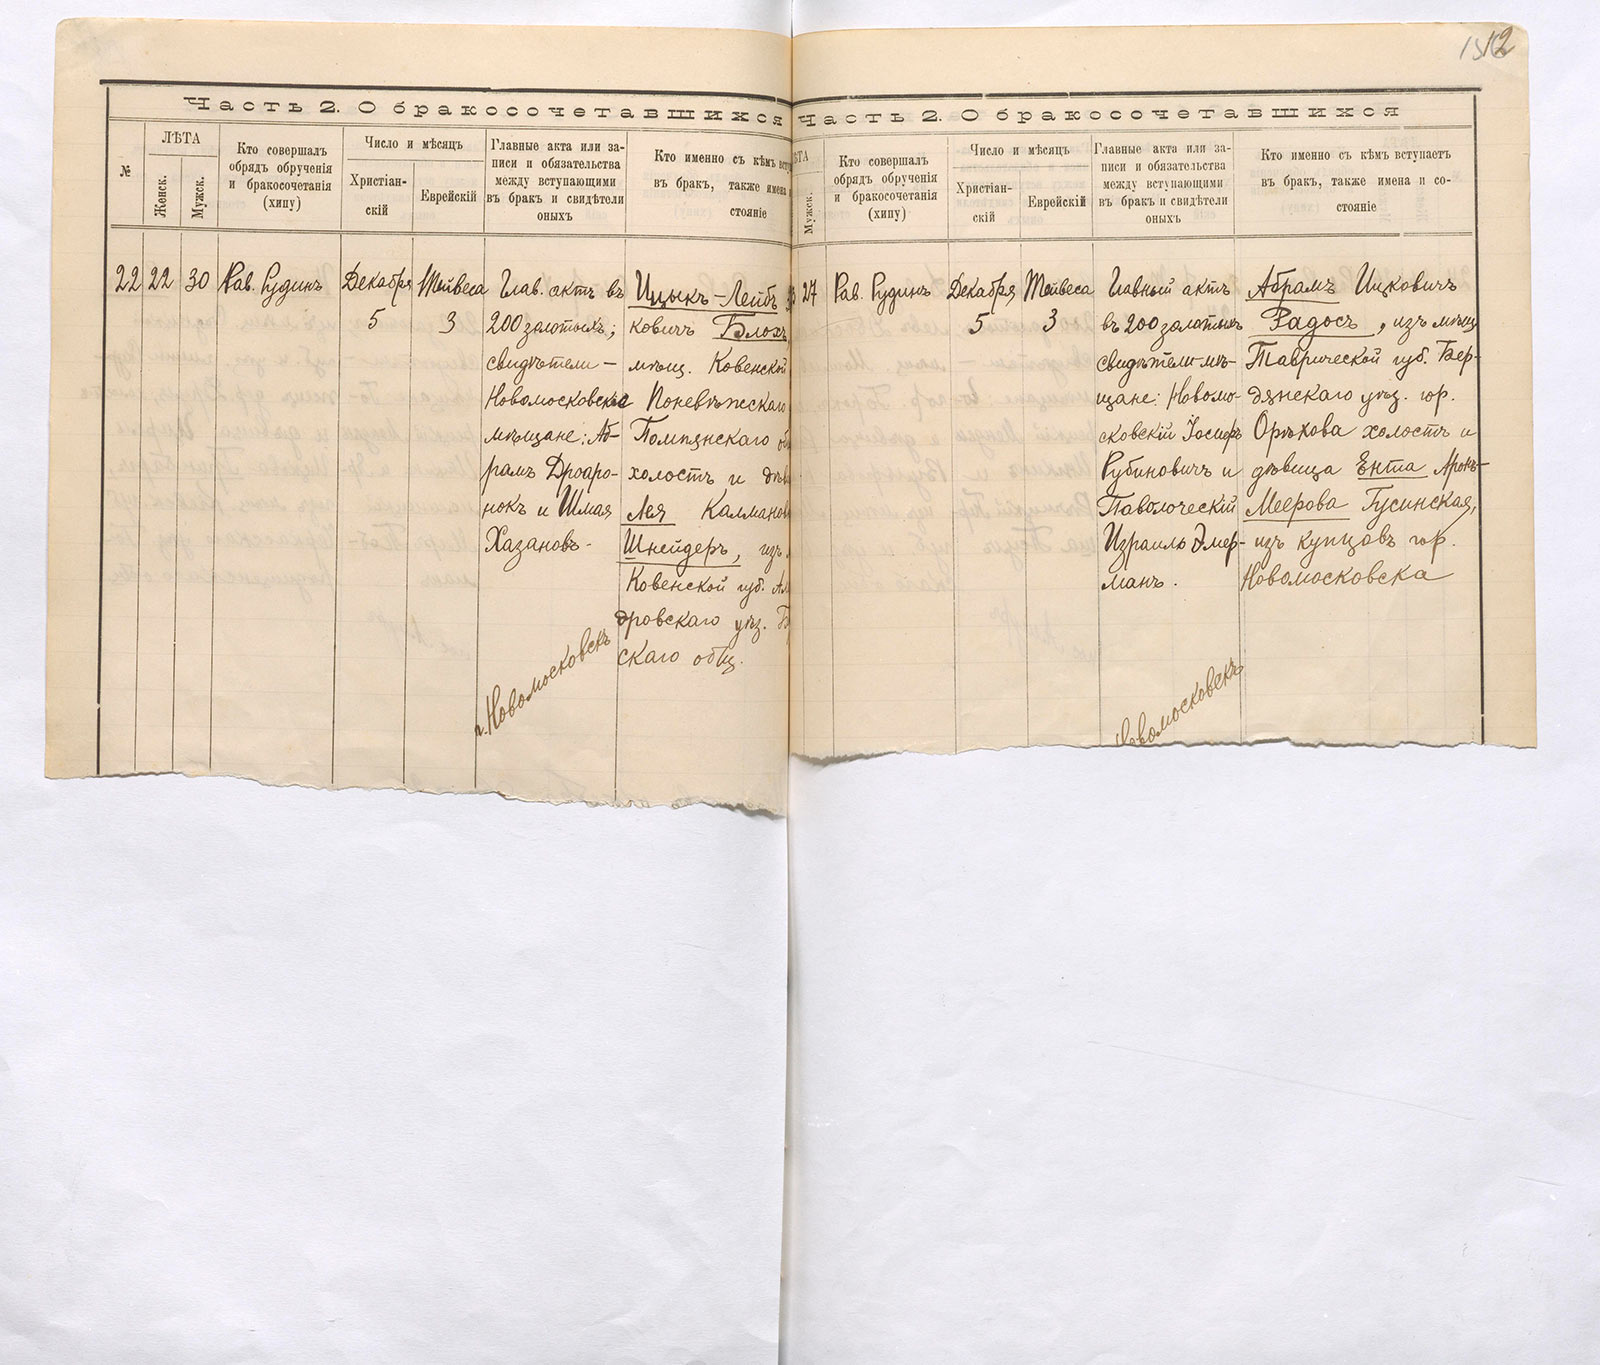 12
Часть 2. О бракосочетавшихся
№
ЛѢТА
Женск.
Мужск.
Кто совершалъ
обрядъ обрученія
и бракосочетанія
(хипу)
Число и мѣсяцъ
Христіан-
скій
Еврейскій
Главные акта или за-
писи и обязательства
между вступающими
въ бракъ и свидѣтели
оныхъ
Кто именно съ кѣмъ всту
въ бракъ, также имена
стояніе
22
22
30
Рав. Рудинъ
Декабря
5
Тейвеса
3
Глав. актъ въ
200 золотыхъ;
свидѣтели –
Новомосковскіе
мѣщане: Аб-
рамъ
нокъ и Шмая
Хазановъ.
г. Новомосковскъ
Ицыкъ-Лейбъ
ковичъ Блохъ
мѣщ. Ковенской
Поневѣжскаго
Помпянскаго об
холостъ и дѣв
Лея Калманов
Шнейдеръ, изъ
Ковенской губ. Ал
дровскаго уѣз.
скаго общ.
Часть 2. О бракосочетавшихся
ѢТА
Мужск.
Кто совершалъ
обрядъ обрученія
и бракосочетанія
(хипу)
Число и мѣсяцъ
Христіан-
скій
Еврейскій
Главные акта или за-
писи и обязательства
между вступающими
въ бракъ и свидѣтели
оныхъ
Кто именно съ кѣмъ вступаетъ
въ бракъ, также имена и со-
стояніе
27
Рав. Рудинъ
Декабря
5
Тейвеса
3
Главный актъ
въ 200 золотыхъ
свидѣтели мѣ-
щане: Новомо-
сковскій Іосифъ
Рубиновичъ и
Паволоческій
Израиль Эмер-
манъ.
Новомосковскъ
Абрамъ Ицковичъ
Радосъ, изъ мѣщ
Таврической губ. Бер-
дянскаго уѣз. гор.
Орѣхова холостъ и
дѣвица Ента Аронъ-
Меерова Гусинская,
изъ купцовъ гор.
Новомосковска